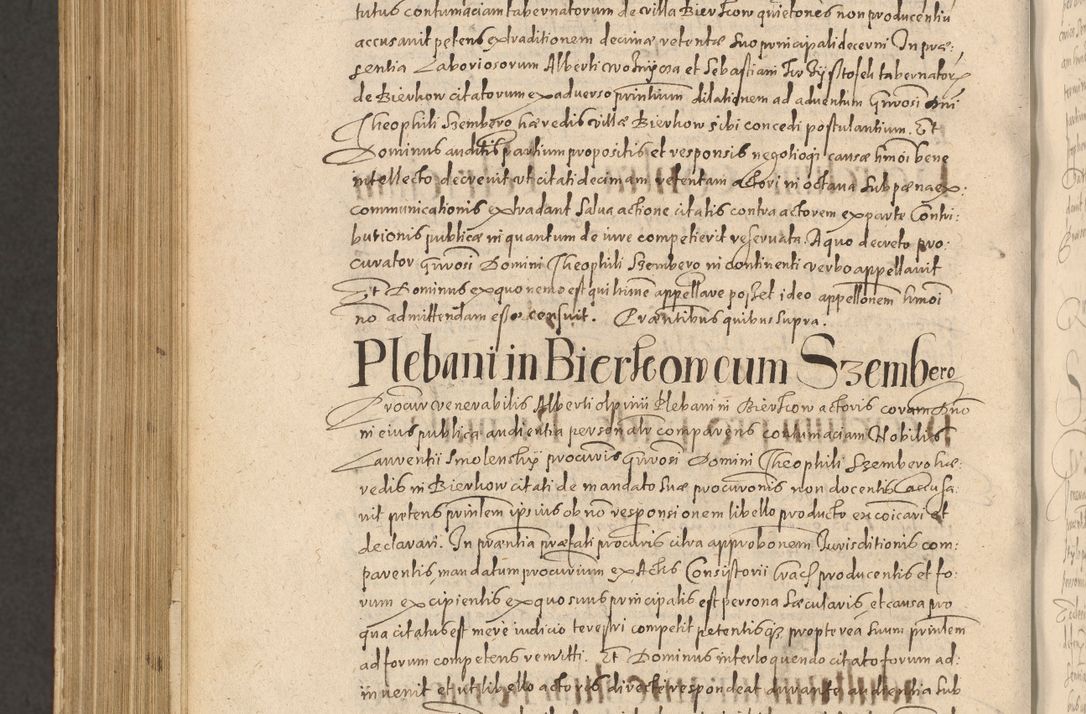 tutus contumaciam tabernatorum de villa Bierkow quietones non producentiu
accusavit petens extraditionem decimæ retentæ suo principali decerni In præ:
sentia Laboriosorum Alberti et Sebastiani tabernator
de Bierkow citatorum ex adverso printium dilationem ad adventum gnrosi Dni
Theophili Szembero hæredis villæ Bierkow sibi concedi postulantium. Et
Dominus auditis partium propositis et responsis negotioqz causæ hmoi bene
intellecto decrevit ut citati decimam retentam actori in octava sub pæna ex:
communicationis extradant salva actione citatis contra actorem ex parte Contri:
butionis publicæ in quantum de iure competierit reservata. A quo decreto pro:
curator gnrosi Domini Theophili Szembero in continenti verbo appellavit
Et Dominus ex quo nemo est qui hmine appellare posset ideo appellonem hmoi
no admittendam esse censuit. Præntibus quibus supra.
Plebani in Bierkow cum Szembero
Procur venerabilis Alberti olpinii Plebani in Bierkow actoris coram Dno
in eius publica audientia personalr comparens contumaciam Nobilis
Laurentii Smolenskÿ procuris gnrosi Domini Theophili Szembero hæ:
redis in Bierkow citati de mandato suæ procuronis non docentis accusa:
vit petens printem ipsius ob no responsionem libello producto excoicari et
declarari. In præntia præfati procuris citra approbonem Jurisditionis com:
parentis mandatum procurium ex Actis Consistorii Crac producentis et fo:
rum excipientis ex quo suus principalis est persona sæcularis, et causa pro
qua citatus est mere iudicio terestri competit petentisqz propterea suum printem
ad forum competens remitti. Et Dominus interloquendo citato forum ad:
invenit et ut libello actoris directe respondeat durante audientia sub